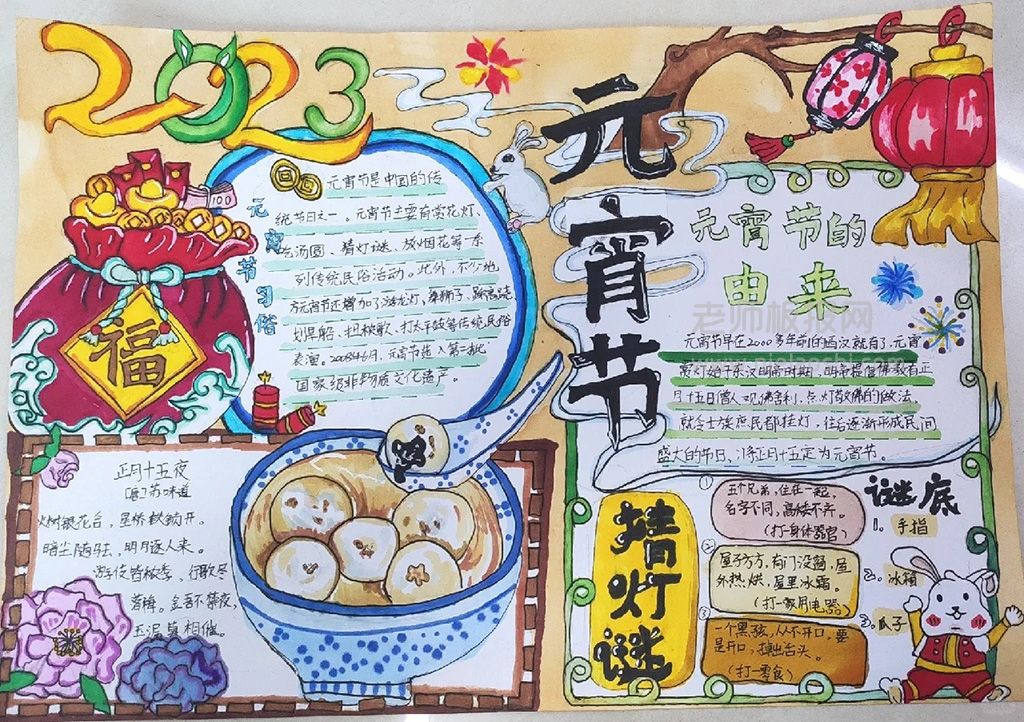 2023
元宵节
元宵节习俗
元宵节是中国的传
统节日之一。元宵节主要有赏花灯、
吃汤圆、猜灯谜、放烟花等一系
列传统民俗活动。此外,不少地
方元宵节还增加了游龙灯、舞狮子、踩高跷、
划旱船、扭秧歌、打太平鼓等传统民俗
表演。2008年6月,元宵节选入第二批
国家级非物质文化遗产。
福
100
正月十五夜
[唐]苏味道
火树银花合,星桥铁锁开。
暗尘随马去,明月逐人来。
游伎皆秾李,行歌尽
落梅。金吾不禁夜,
玉漏莫相催。
元宵节的
由来
老师板报网
元宵节早在2000多年前的西汉就有了,元宵
赏灯始于东汉明帝时期,明帝提倡佛教有正
月十五日僧人观佛舍利,点灯敬佛的做法,
就令士族庶民都挂灯,往后逐渐形成民间
盛大的节日,将正月十五定为元宵节。
猜灯谜
①
五个兄弟,住在一起,
名字不同,高矮不齐。
(打一身体器官)
②
屋子方方,有门没窗,屋
外热烘,屋里冰霜。
(打一家用电器)
③
一个黑孩,从不开口,要
是开口,掉出舌头。
(打一零食)
谜底
1. 手指
2. 冰箱
3. 瓜子